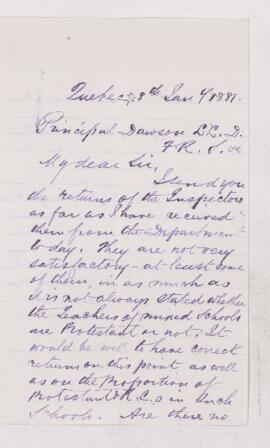 Quebec, 8th Jany 1881.
Principal Dawson LL. D.
F. R. S. &c
My dear Sir,
I send you
the returns of the Inspectors
as far as I have received
them from the Department
to day. They are not very
satisfactory - at least some
of them, in as much as
it is not always stated whether
the teachers of mixed Schools
are Protestant or not. It
would be well to have correct
returns on this point, as well
as on the Proportion of
Protestant & R. C.s in such
Schools. Are there no